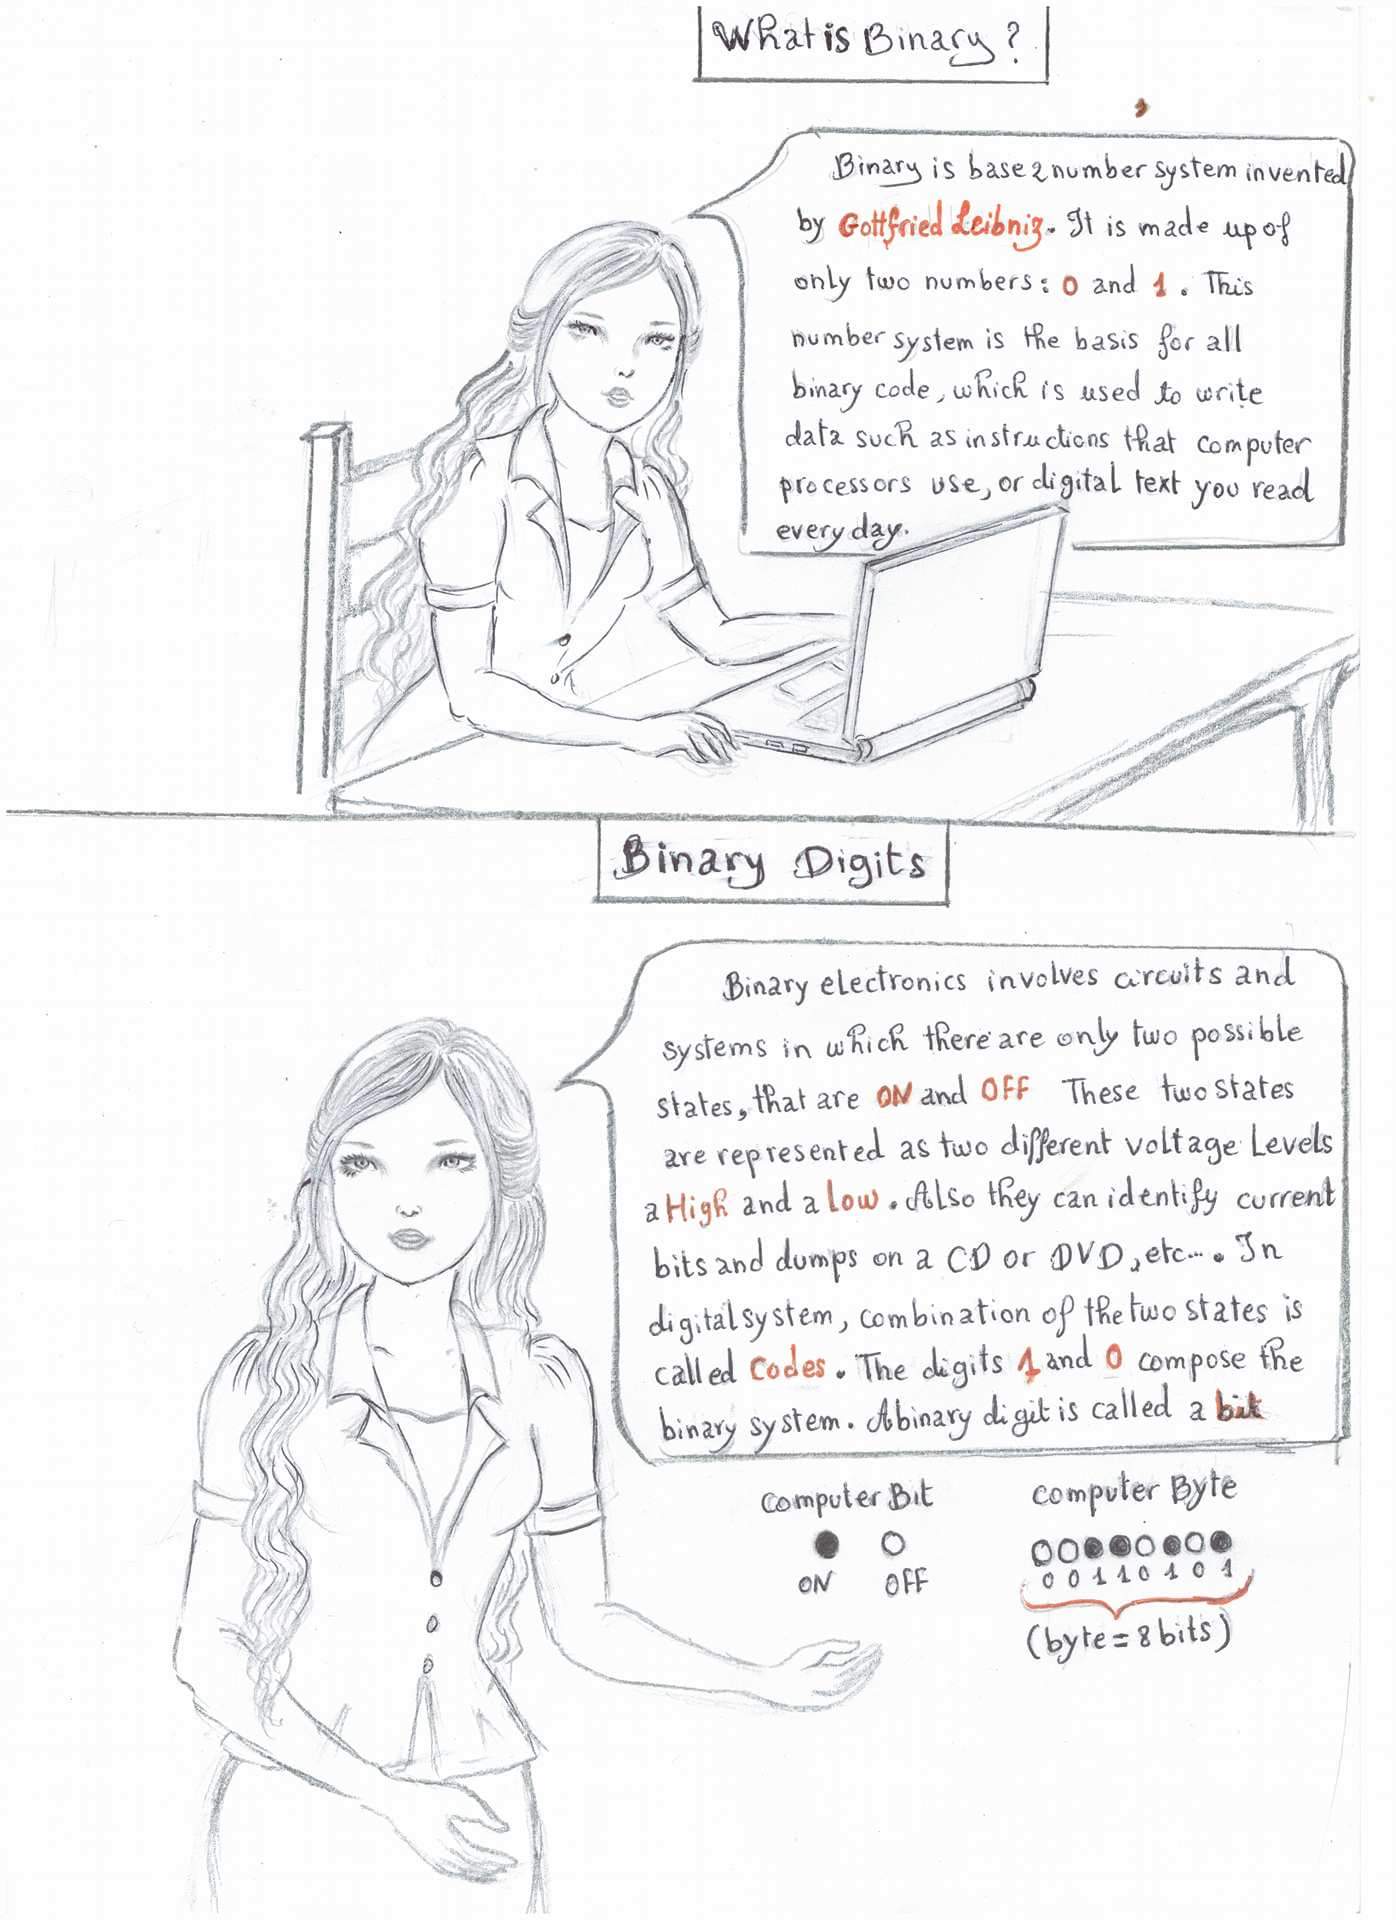 What is Binary?
Binary is base 2 number system invented
by Gottfried Leibniz. It is made up of
only two numbers: 0 and 1. This
number system is the basis for all
binary code, which is used to write
data such as instructions that computer
processors use, or digital text you read
every day.
Binary Digits
Binary electronics involves circuits and
systems in which there are only two possible
states, that are ON and OFF These two states
are represented as two different voltage Levels
a High and a low. Also they can identify current
bits and dumps on a CD or DVD, etc.... In
digital system, combination of the two states is
called Codes. The digits 1 and 0 compose the
binary system. A binary digit is called a bit
Computer Bit
ON OFF
Computer Byte
0 0 1 1 0 1 0 1
(byte = 8 bits)